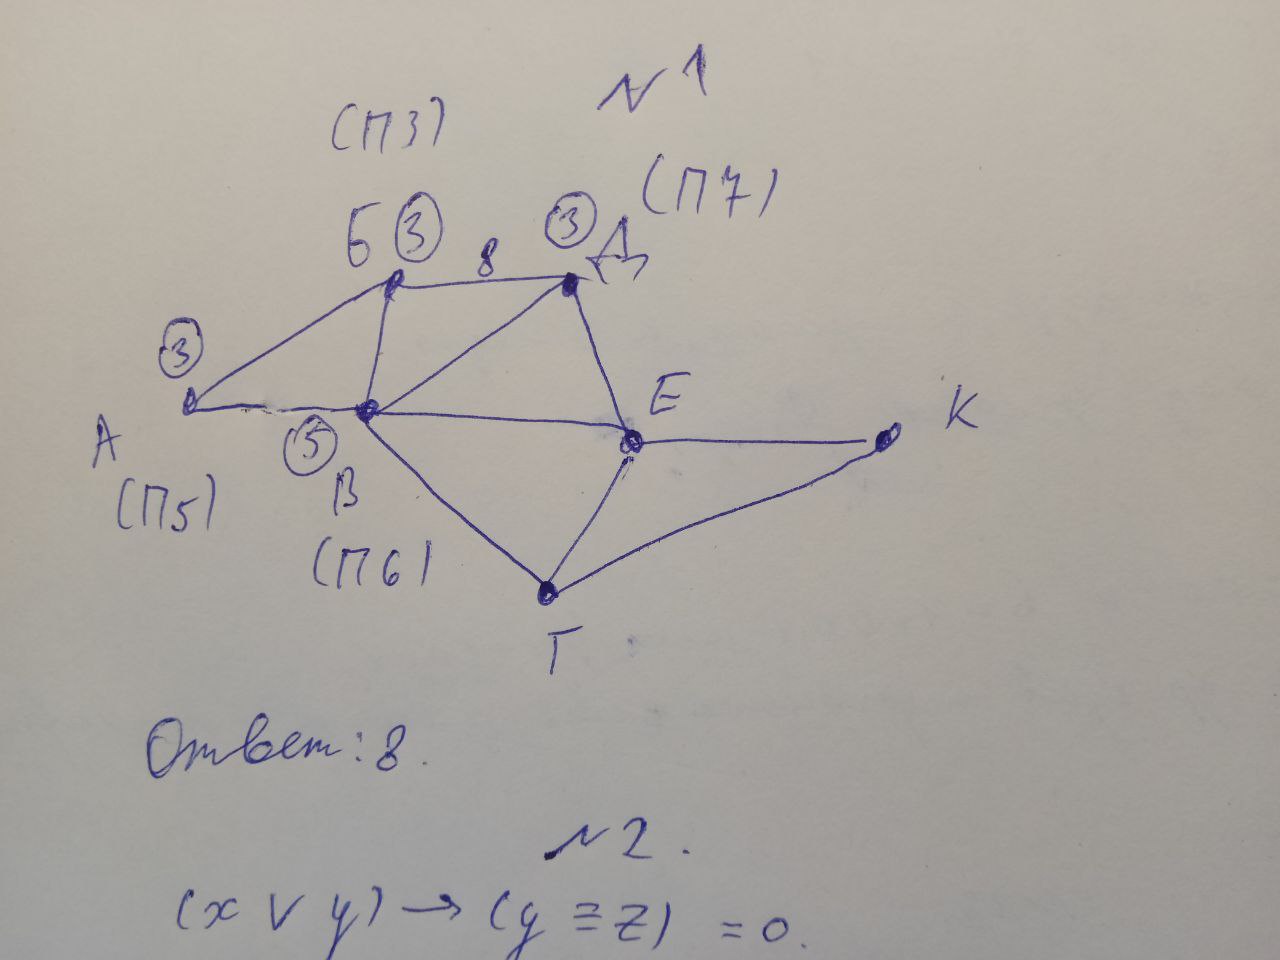 № 1
(П3)
(П7)
Б ③ 8 ③ Д
③
А
Е
К
⑤
В
(П5)
(П6)
Г
Ответ: 8.
№ 2.
(x ∨ y) → (y ≡ z) = 0.